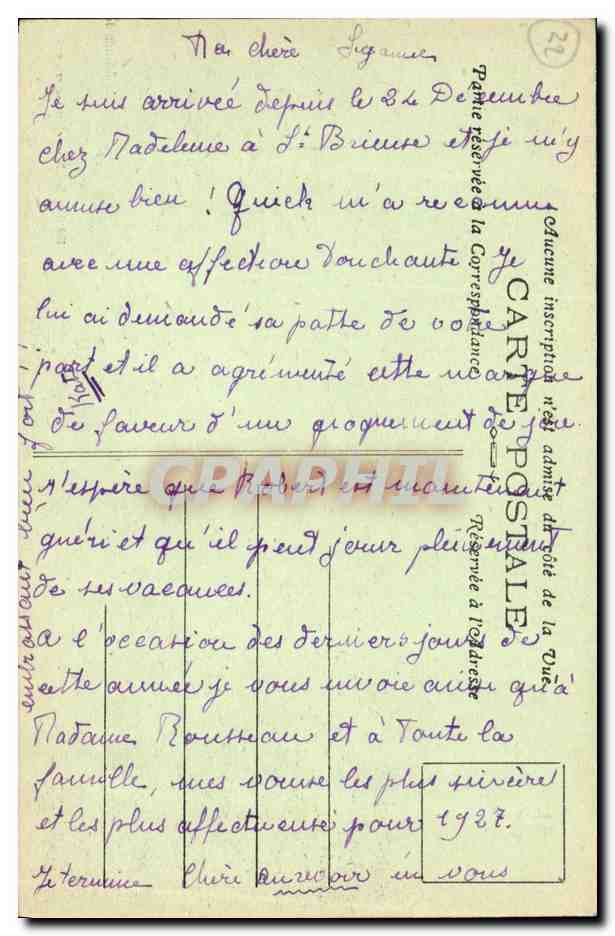 Ma chère Suzanne
Je suis arrivée depuis le 24 Décembre
chez Madeleine à St Brieuse et je m'y
amuse bien ! Quick m'a reconnu
avec une affection touchante Je
lui ai demandé sa patte de votre
part et il a agrémenté cette marque
de faveur d'un grognement de joie
J'espère que Robert est maintenant
guéri et qu'il peut jouir pleinement
de ses vacances.
A l'occasion des derniers jours de
cette année je vous envoie ainsi qu'à
Madame Rousseau et à Toute la
famille, mes voeuse les plus sincère
et les plus affectueuse pour 1927.
Je termine Chère au revoir en vous
embrassant bien fort !
Aucune inscription n'est admise du côté de la Vue
CARTE POSTALE
Partie réservée à la Correspondance
Réservée à l'Adresse
22
CPAPHIL